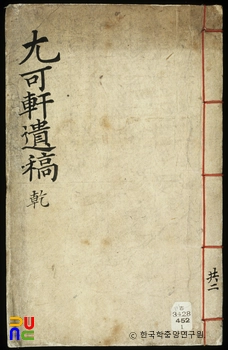 尤可軒遺稿
乾
共二
3428
452
1
© 한국학중앙연구원